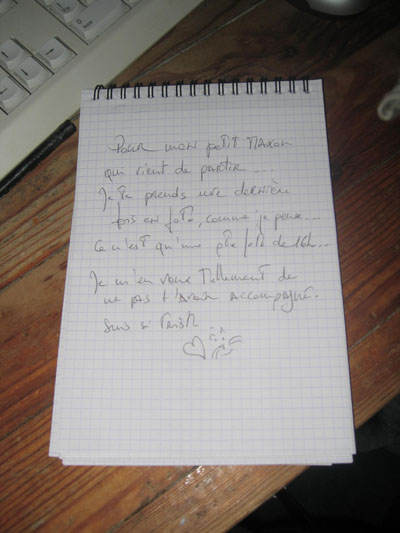 Pour mon petit Maxou
qui vient de partir...
Je te prends une dernière
fois en foto, comme je peux...
Ce n'est qu'une ptte foto de 16h...
Je m'en veux tellement de
ne pas t'avoir accompagné.
Suis si triste